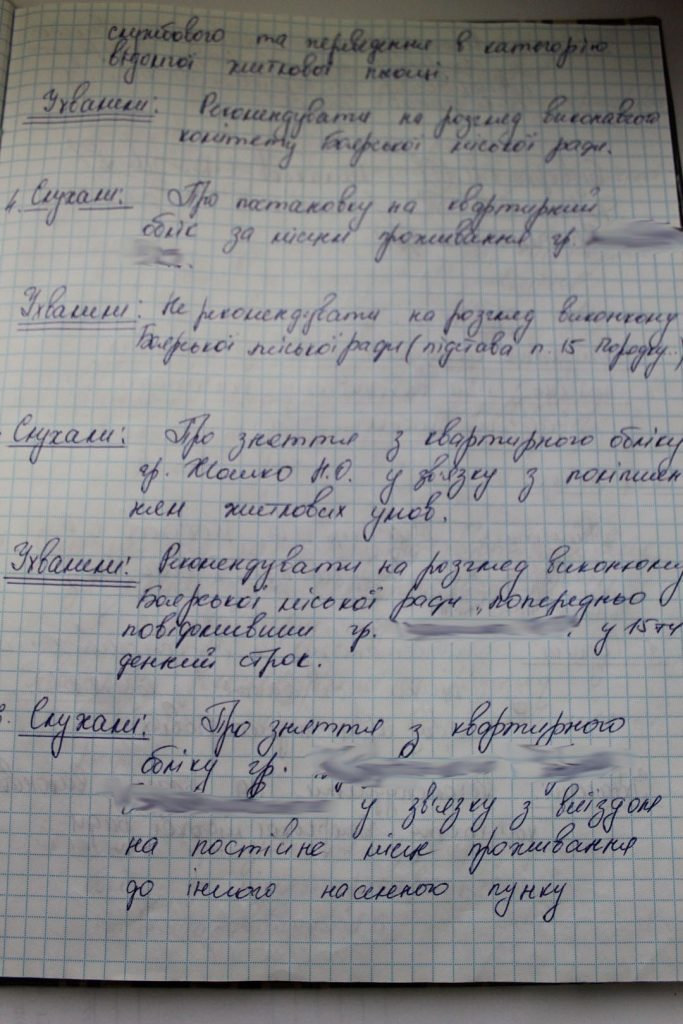 службового та переведення в категорію
відомчої житлової площі.
Ухвалили: Рекомендувати на розгляд виконавчого
комітету Боярської міської ради.
4. Слухали: Про постановку на квартирний
облік за місцем проживання гр.
Ухвалили: Не рекомендувати на розгляд виконкому
Боярської міської ради (підстава п. 15 Порядку..)
Слухали: Про зняття з квартирного обліку
гр. Н.О. у зв'язку з поліпшен
ням житлових умов.
Ухвалили: Рекомендувати на розгляд виконкому
Боярської міської ради, попередньо
повідомивши гр. у 15ти
денний строк.
Слухали: Про зняття з квартирного
обліку гр.
у зв'язку з виїздом
на постійне місце проживання
до іншого населеного пунку